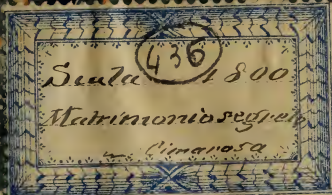 436
Scala 1800
Matrimonio segreto
Cimarosa